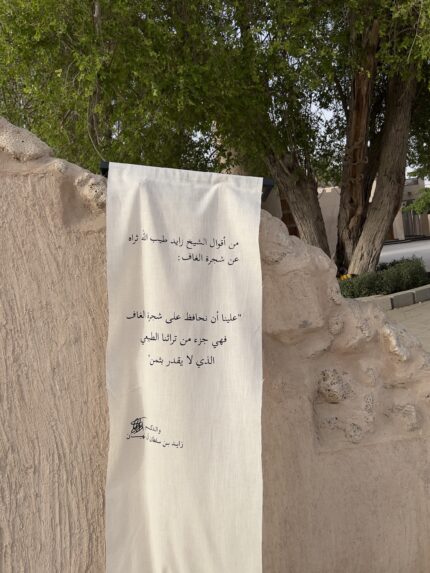 من أقوال الشيخ زايد طيب الله ثراه
عن شجرة الغاف :
"علينا أن نحافظ على شجرة الغاف
فهي جزء من تراثنا الطبيعي
الذي لا يقدر بثمن"
والدكم
زايد بن سلطان آل نهيان